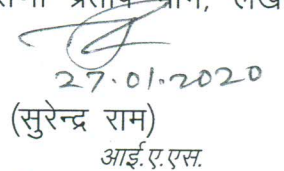 27.01.2020
(सुरेन्द्र राम)
आई.ए.एस.